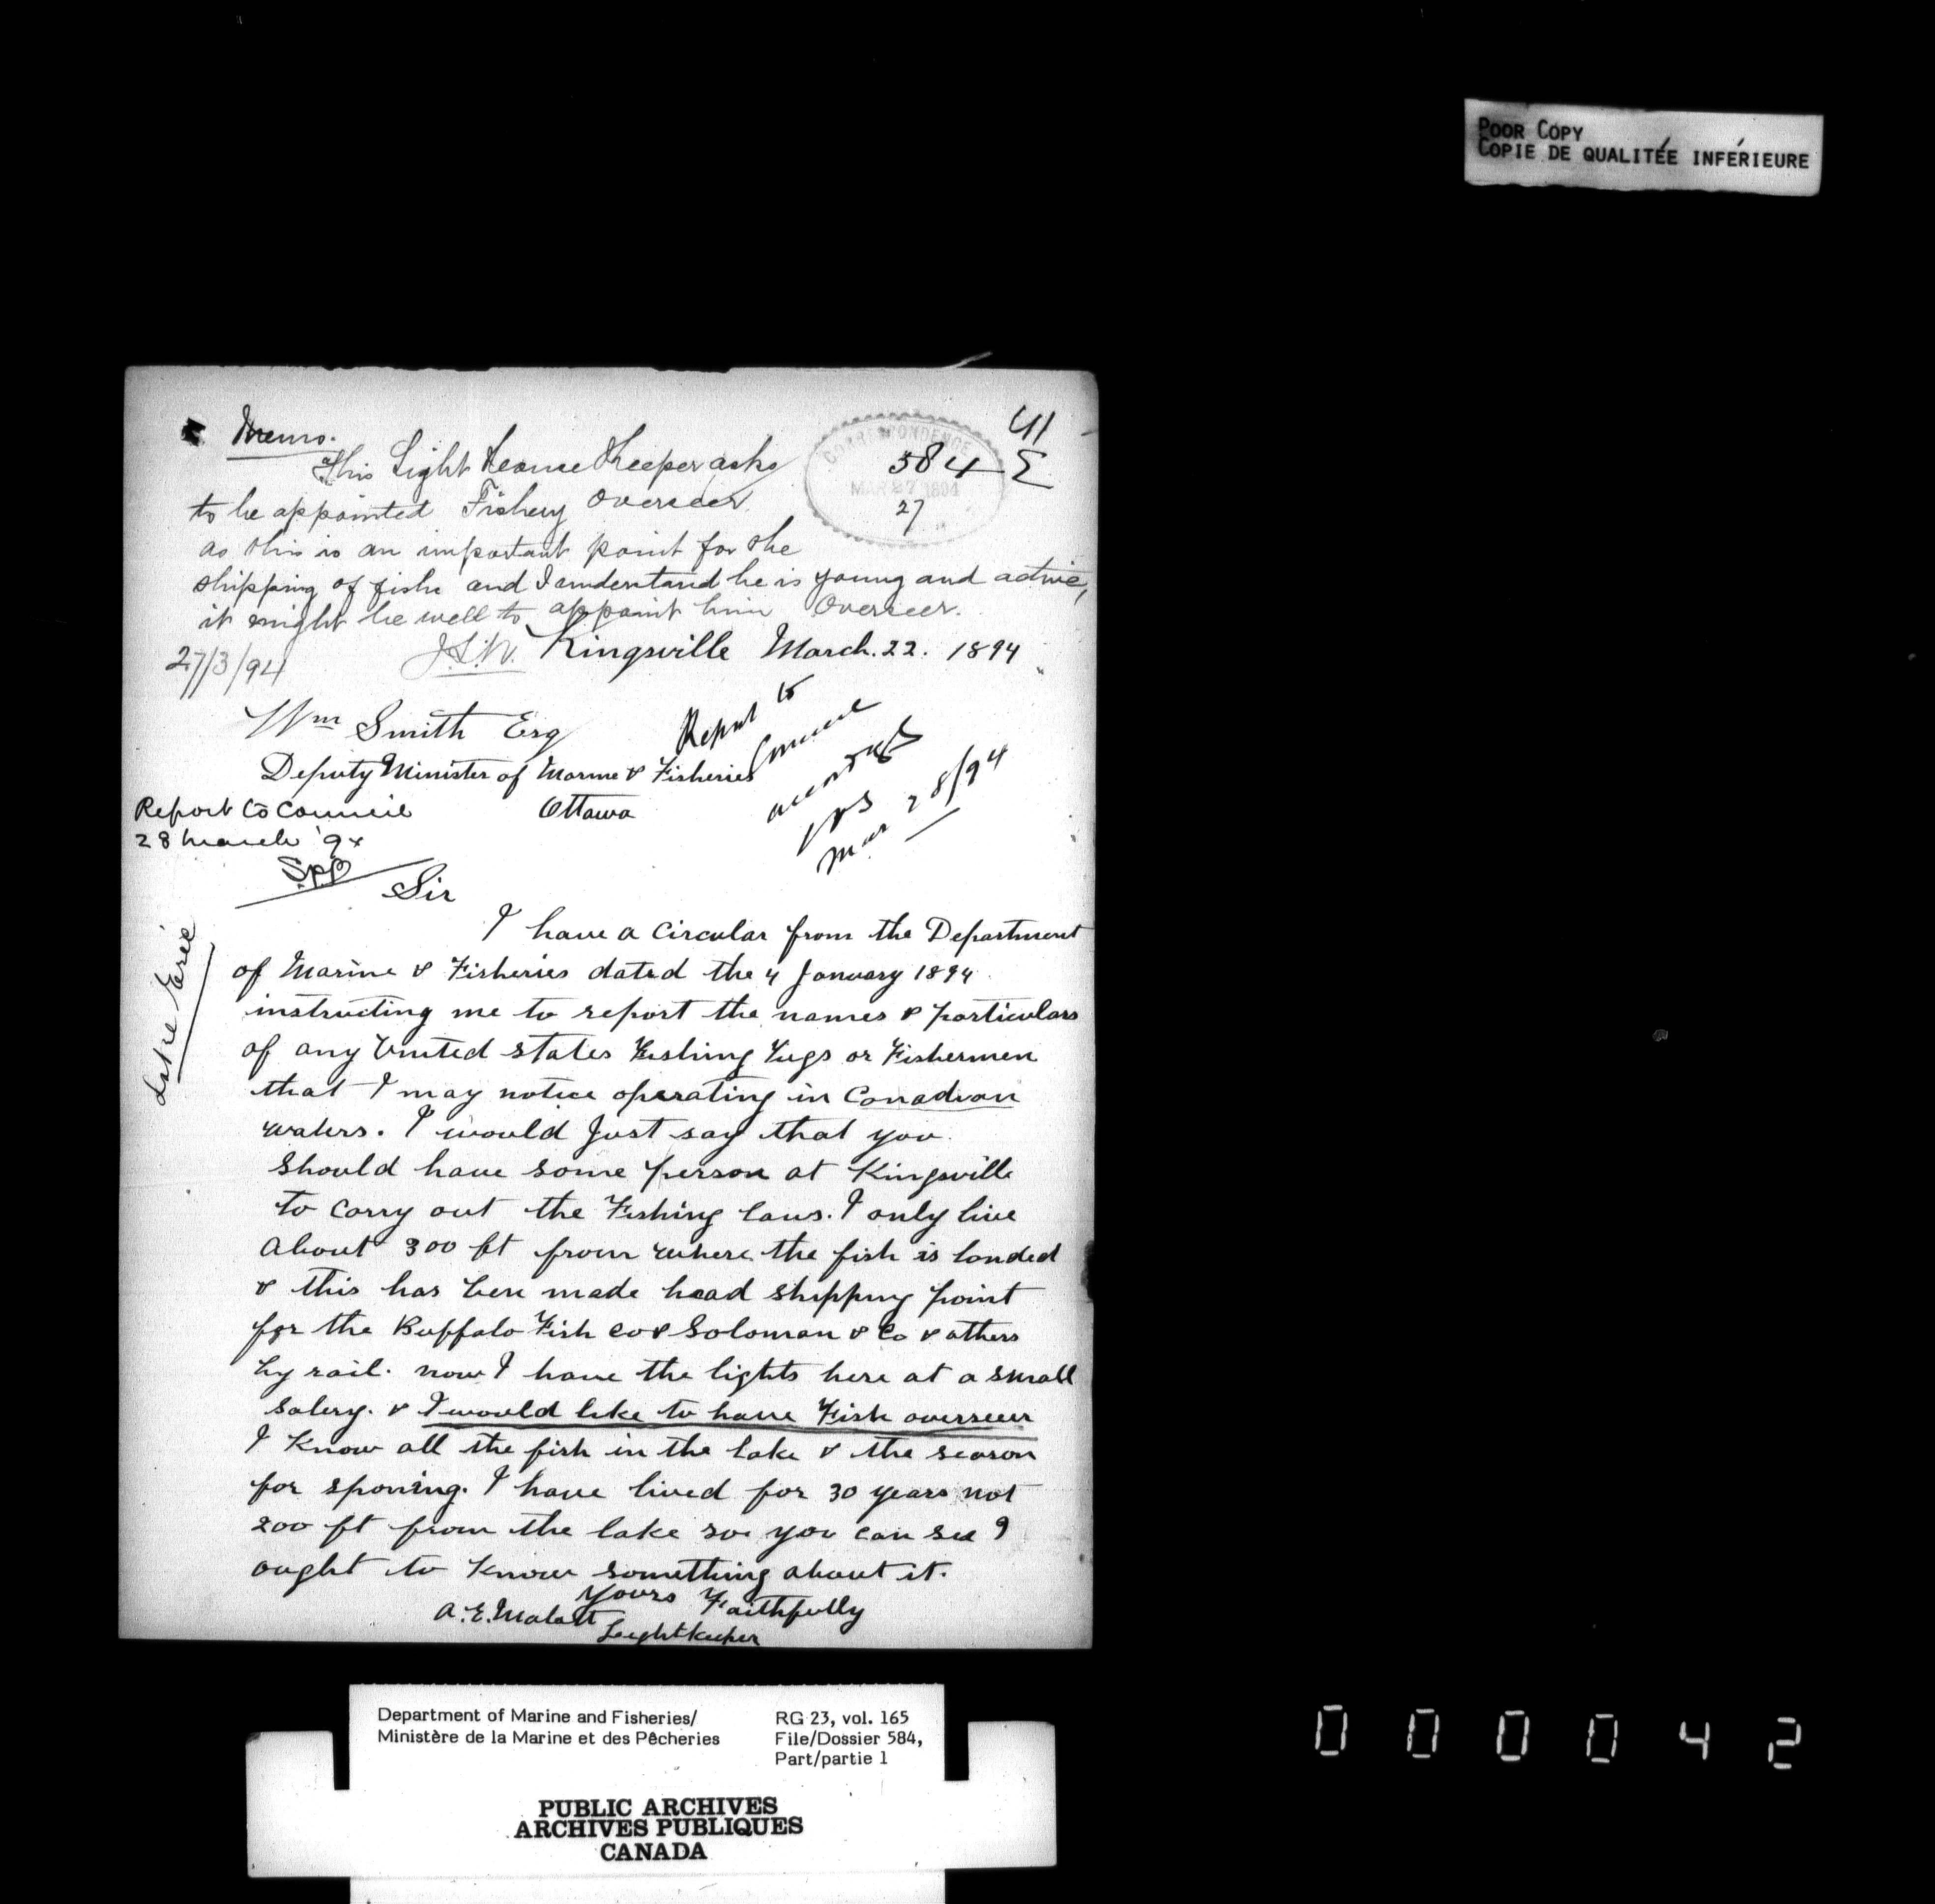 POOR COPY
COPIE DE QUALITÉE INFÉRIEURE
41
Memo.
This Light House Keeper asks
to be appointed Fishery Overseer
as this is an important point for the
shipping of fish and I understand he is young and active,
it might be well to appoint him Overseer.
27/3/94
CORRESPONDENCE
584
MAR 27 1894
27
Kingsville March. 22. 1894
Wm Smith Esq
Deputy Minister of Marine & Fisheries
Ottawa
Report to
Council
accordingly
Mar 28/94
Report to Council
28 March '94
Lake Erie
Sir
I have a circular from the Department
of Marine & Fisheries dated the 4 January 1894
instructing me to report the names & particulars
of any United States Fishing Tugs or Fishermen
that I may notice operating in Canadian
waters. I would Just say that you
should have some person at Kingsville
to carry out the Fishing laws. I only live
about 300 ft from where the fish is landed
& this has been made head shipping point
for the Buffalo Fish Co & Soloman & Co & others
by rail. now I have the lights here at a small
salery. & I would like to have Fish overseer
I Know all the fish in the lake & the season
for sponing. I have lived for 30 years not
200 ft from the lake so you can see I
ought to Know something about it.
Yours Faithfully
A. E. Malott
Lightkeeper
Department of Marine and Fisheries/
Ministère de la Marine et des Pêcheries
RG 23, vol. 165
File/Dossier 584,
Part/partie 1
PUBLIC ARCHIVES
ARCHIVES PUBLIQUES
CANADA
000042